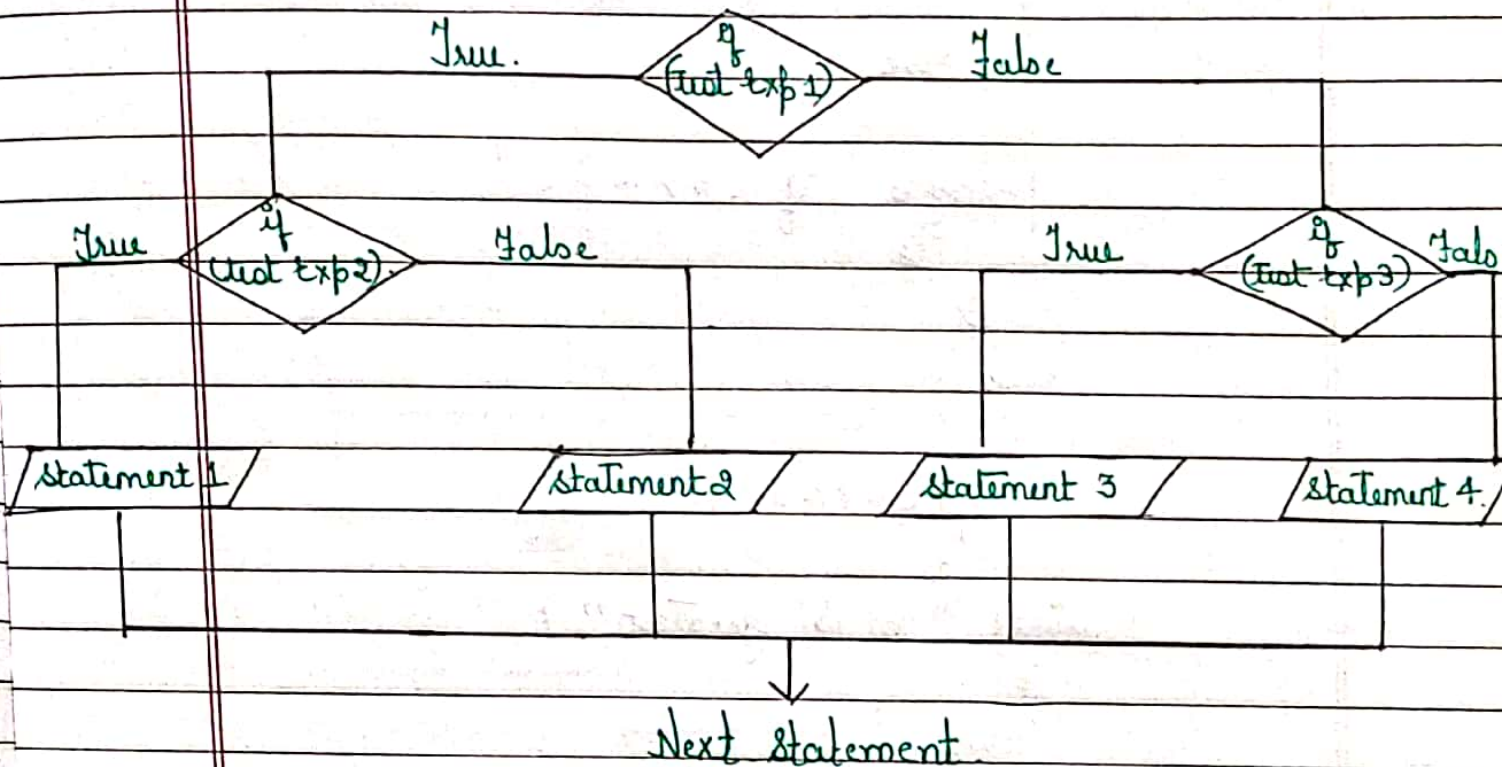 if
True.
(Test Exp 1)
False
if
True
(test Exp 2).
False
if
True
(Test Exp 3)
Fals
Statement 1
Statement 2
Statement 3
Statement 4.
Next Statement.